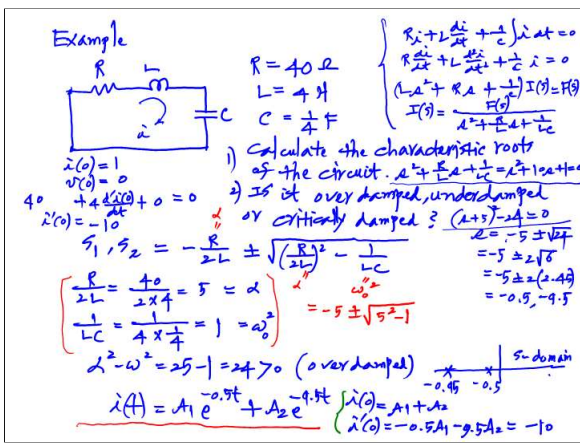 Example
R L C i
R = 40 Ω
L = 4 H
C = 1/4 F
Ri + L di/dt + 1/C ∫ i dt = 0
R di/dt + L d²i/dt² + 1/C i = 0
(Ls² + Rs + 1/C) I(s) = F(s)
I(s) = F(s) / (s² + R/L s + 1/LC)
i(0) = 1
v(0) = 0
40 + 4 di(0)/dt + 0 = 0
i'(0) = -10
1) Calculate the characteristic roots
of the circuit. s² + R/L s + 1/LC = s² + 10s + 1 = 0
2) Is it overdamped, underdamped
or critically damped? (s+5)² - 24 = 0
s = -5 ± √24
= -5 ± 2√6
= -5 ± 2(2.45)
= -0.5, -9.5
S1, S2 = - R/2L ± √((R/2L)² - 1/LC)
α α ω0²
= -5 ± √(5² - 1)
R/2L = 40/(2×4) = 5 = α
1/LC = 1/(4×1/4) = 1 = ω0²
α² - ω² = 25 - 1 = 24 > 0 (overdamped)
S-domain
-0.95 -0.5
i(t) = A1 e^-0.5t + A2 e^-9.5t
i(0) = A1 + A2
i'(0) = -0.5A1 - 9.5A2 = -10